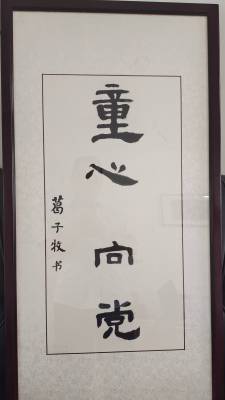 童心向党
葛子牧书